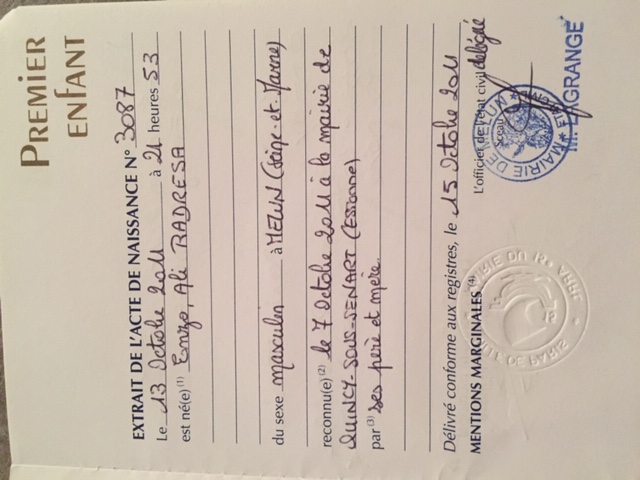 PREMIER
ENFANT
EXTRAIT DE L'ACTE DE NAISSANCE N° 3087
Le 13 Octobre 2011 à 21 heures 53
est né(e) (1) Enzo, Ali RADRESA
du sexe masculin à MELUN (Seine-et-Marne)
reconnu(e) (2) le 7 Octobre 2011 à la mairie de
QUINCY-SOUS-SENART (Essonne)
par (3) ses père et mère.
Délivré conforme aux registres, le 15 Octobre 2011
MENTIONS MARGINALES (4)
L'officier de l'état civil délégué
Sceau
MAIRIE DE MELUN
M. LAGRANGE
VILLE DE PARIS